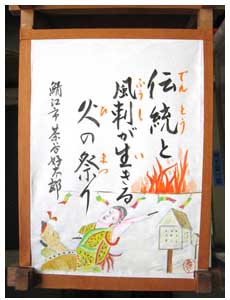 でんとう
伝統と
ふうし い
風刺が生きる
ひ まつ
火の祭り
鯖江市 茶谷好太郎